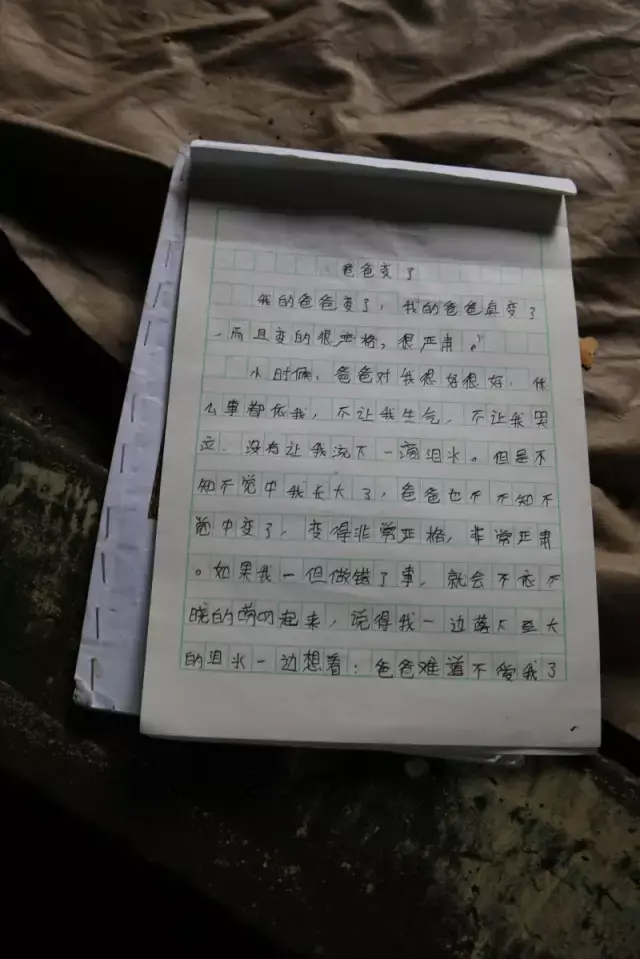 爸爸变了
我的爸爸变了，我的爸爸真变了
，而且变的很严格，很严肃。
小时候，爸爸对我很好很好，什
么事都依我，不让我生气，不让我哭
泣，没有让我流下一滴泪水。但是不
知不觉中我长大了，爸爸也在不知不
觉中变了，变得非常严格，非常严肃
。如果我一但做错了事，就会不
的起来，说得我一边落下豆大
的泪水一边想着：爸爸难道不爱我了